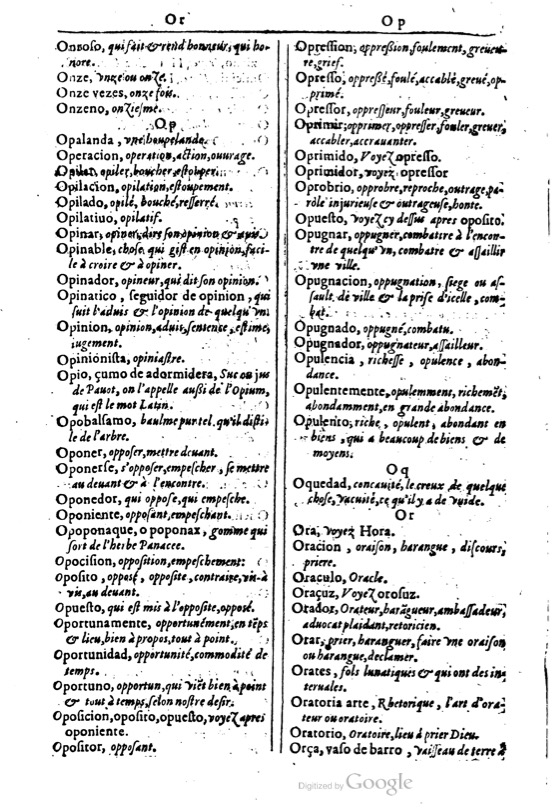 Or
Onroso, qui fait & rend honneur, qui ho-
nore.
Onze, vnze ou onze.
Onze vezes, onze fois.
Onzeno, onziesme.
Op
Opalanda, vne houpelande.
Operacion, operation, action, ouurage.
Opilar, opiler, boucher, estouper.
Opilacion, opilation, estoupement.
Opilado, opilé, bouché, resserré.
Opilatiuo, opilatif.
Opinar, opiner, dire son opinion & auis.
Opinable, chose qui gist en opinion, faci-
le à croire & à opiner.
Opinador, opineur, qui dit son opinion.
Opinatico, seguidor de opinion, qui
suit l'aduis & l'opinion de quelqu'vn
Opinion, opinion, aduis, sentence, estime,
iugement.
Opinionista, opiniastre.
Opio, çumo de adormidera, Suc ou jus
de Pauot, on l'appelle aussi de l'Opium,
qui est le mot Latin.
Opobalsamo, baulme pur tel qu'il disti-
le de l'arbre.
Oponer, opposer, mettre deuant.
Oponerse, s'opposer, empescher, se mettre
au deuant & à l'encontre.
Oponedor, qui oppose, qui empesche.
Oponiente, opposant, empeschant.
Opoponaque, o poponax, gomme qui
sort de l'herbe Panacee.
Opocision, opposition, empeschement:
Oposito, opposé, opposite, contraire, vis-à
vis, au deuant.
Opuesto, qui est mis à l'opposite, opposé.
Oportunamente, opportunément, en tẽps
& lieu, bien à propos, tout à point.
Oportunidad, opportunité, commodité de
temps.
Oportuno, opportun, qui viẽt bien à point
& tout à temps, selon nostre desir.
Oposicion, oposito, opuesto, voyez apres
oponiente.
Opositor, opposant.
Op
Opression, oppression, foulement, greueu-
re, grief.
Opresso, oppressé, foulé, accablé, greué, op-
primé.
Opressor, oppresseur, fouleur, greueur.
Oprimir, opprimer, oppresser, fouler, greuer,
accabler, accrauanter.
Oprimido, Voyez opresso.
Oprimidor, voyez opressor
Oprobrio, opprobre, reproche, outrage, pa-
role iniurieuse & outrageuse, honte.
Opuesto, voyez cy dessus apres oposito.
Opugnar, oppugner, combattre à l'encon-
tre de quelqu'vn, combatre & assaillir
vne ville.
Opugnacion, oppugnation, siege ou as-
sault de ville & la prise d'icelle, com-
bat.
Opugnado, oppugné, combatu.
Opugnador, oppugnateur, assailleur.
Opulencia, richesse, opulence, abon-
dance.
Opulentemente, opulemment, richemẽt,
abondamment, en grande abondance.
Opulento, riche, opulent, abondant en
biens, qui a beaucoup de biens & de
moyens.
Oq
Oquedad, concauité, le creux de quelque
chose, vacuité, ce qu'il y a de vuide.
Or
Ora, voyez Hora.
Oracion, oraison, harangue, discours,
priere.
Oraculo, Oracle.
Oraçuz, Voyez orosuz.
Orador, Orateur, harãgueur, ambassadeur,
aduocat plaidant, retoricien.
Orar, prier, haranguer, faire vne oraison
ou harangue, declamer.
Orates, fols lunatiques & qui ont des in
teruales.
Oratoria arte, Rhetorique, l'art d'ora-
teur ou oratoire.
Oratorio, Oratoire, lieu à prier Dieu.
Orça, vaso de barro, vaisseau de terre à
Digitized by Google